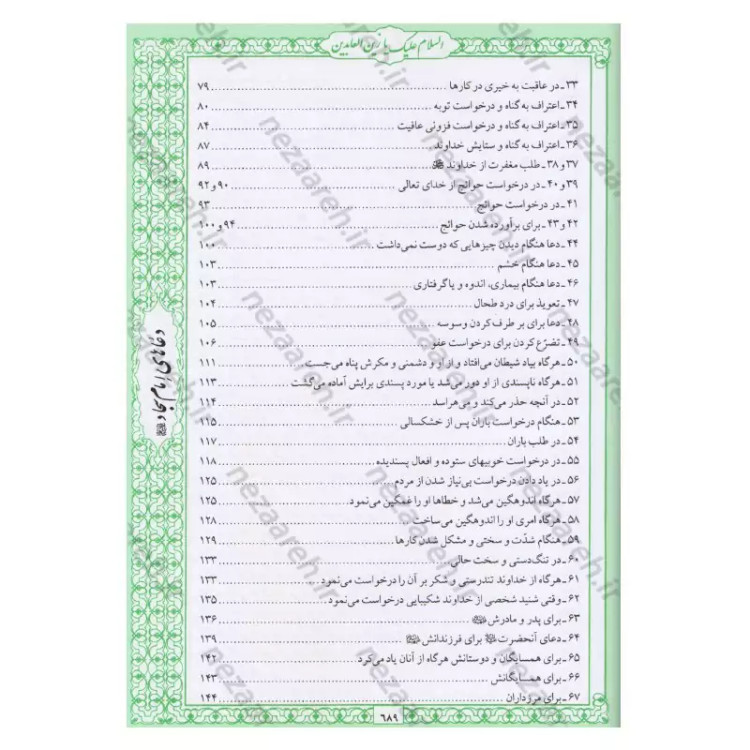 السلام علیک یا زین العابدین
۳۳ـ در عاقبت به خیری در کارها ........ ۷۹
۳۴ـ اعتراف به گناه و درخواست توبه ........ ۸۰
۳۵ـ اعتراف به گناه و درخواست فزونی عافیت ........ ۸۴
۳۶ـ اعتراف به گناه و ستایش خداوند ........ ۸۷
۳۷ و ۳۸ـ طلب مغفرت از خداوند ........ ۸۹
۳۹ و ۴۰ـ در درخواست حوائج از خدای تعالی ........ ۹۰ و ۹۲
۴۱ـ در درخواست حوائج ........ ۹۳
۴۲ و ۴۳ـ برای برآورده شدن حوائج ........ ۹۴ و ۱۰۰
۴۴ـ دعا هنگام دیدن چیزهایی که دوست نمی‌داشت ........ ۱۰۰
۴۵ـ دعا هنگام خشم ........ ۱۰۳
۴۶ـ دعا هنگام بیماری، اندوه و یا گرفتاری ........ ۱۰۳
۴۷ـ تعویذ برای درد طحال ........ ۱۰۴
۴۸ـ دعا برای بر طرف کردن وسوسه ........ ۱۰۵
۴۹ـ تضرّع کردن برای درخواست عفو ........ ۱۰۶
۵۰ـ هرگاه بیاد شیطان می‌افتاد و از او و دشمنی و مکرش پناه می‌جست ........ ۱۱۱
۵۱ـ هرگاه ناپسندی از او دور می‌شد یا مورد پسندی برایش آماده می‌گشت ........ ۱۱۳
۵۲ـ در آنچه حذر می‌کند و می‌هراسد ........ ۱۱۴
۵۳ـ هنگام درخواست باران پس از خشکسالی ........ ۱۱۵
۵۴ـ در طلب باران ........ ۱۱۷
۵۵ـ در درخواست خوبیهای ستوده و افعال پسندیده ........ ۱۱۸
۵۶ـ در یاد دادن درخواست بی‌نیاز شدن از مردم ........ ۱۲۵
۵۷ـ هرگاه اندوهگین می‌شد و خطاها او را غمگین می‌نمود ........ ۱۲۵
۵۸ـ هرگاه امری او را اندوهگین می‌ساخت ........ ۱۲۸
۵۹ـ هنگام شدّت و سختی و مشکل شدن کارها ........ ۱۲۹
۶۰ـ در تنگ‌دستی و سخت حالی ........ ۱۳۳
۶۱ـ هرگاه از خداوند تندرستی و شکر بر آن را درخواست می‌نمود ........ ۱۳۳
۶۲ـ وقتی شنید شخصی از خداوند شکیبایی درخواست می‌نمود ........ ۱۳۵
۶۳ـ برای پدر و مادرش ........ ۱۳۶
۶۴ـ دعای آنحضرت برای فرزندانش ........ ۱۳۹
۶۵ـ برای همسایگان و دوستانش هرگاه از آنان یاد می‌کرد ........ ۱۴۲
۶۶ـ برای همسایگانش ........ ۱۴۳
۶۷ـ برای مرزداران ........ ۱۴۴
دعاهای امام سجاد
۶۸۹
nezaareh.ir